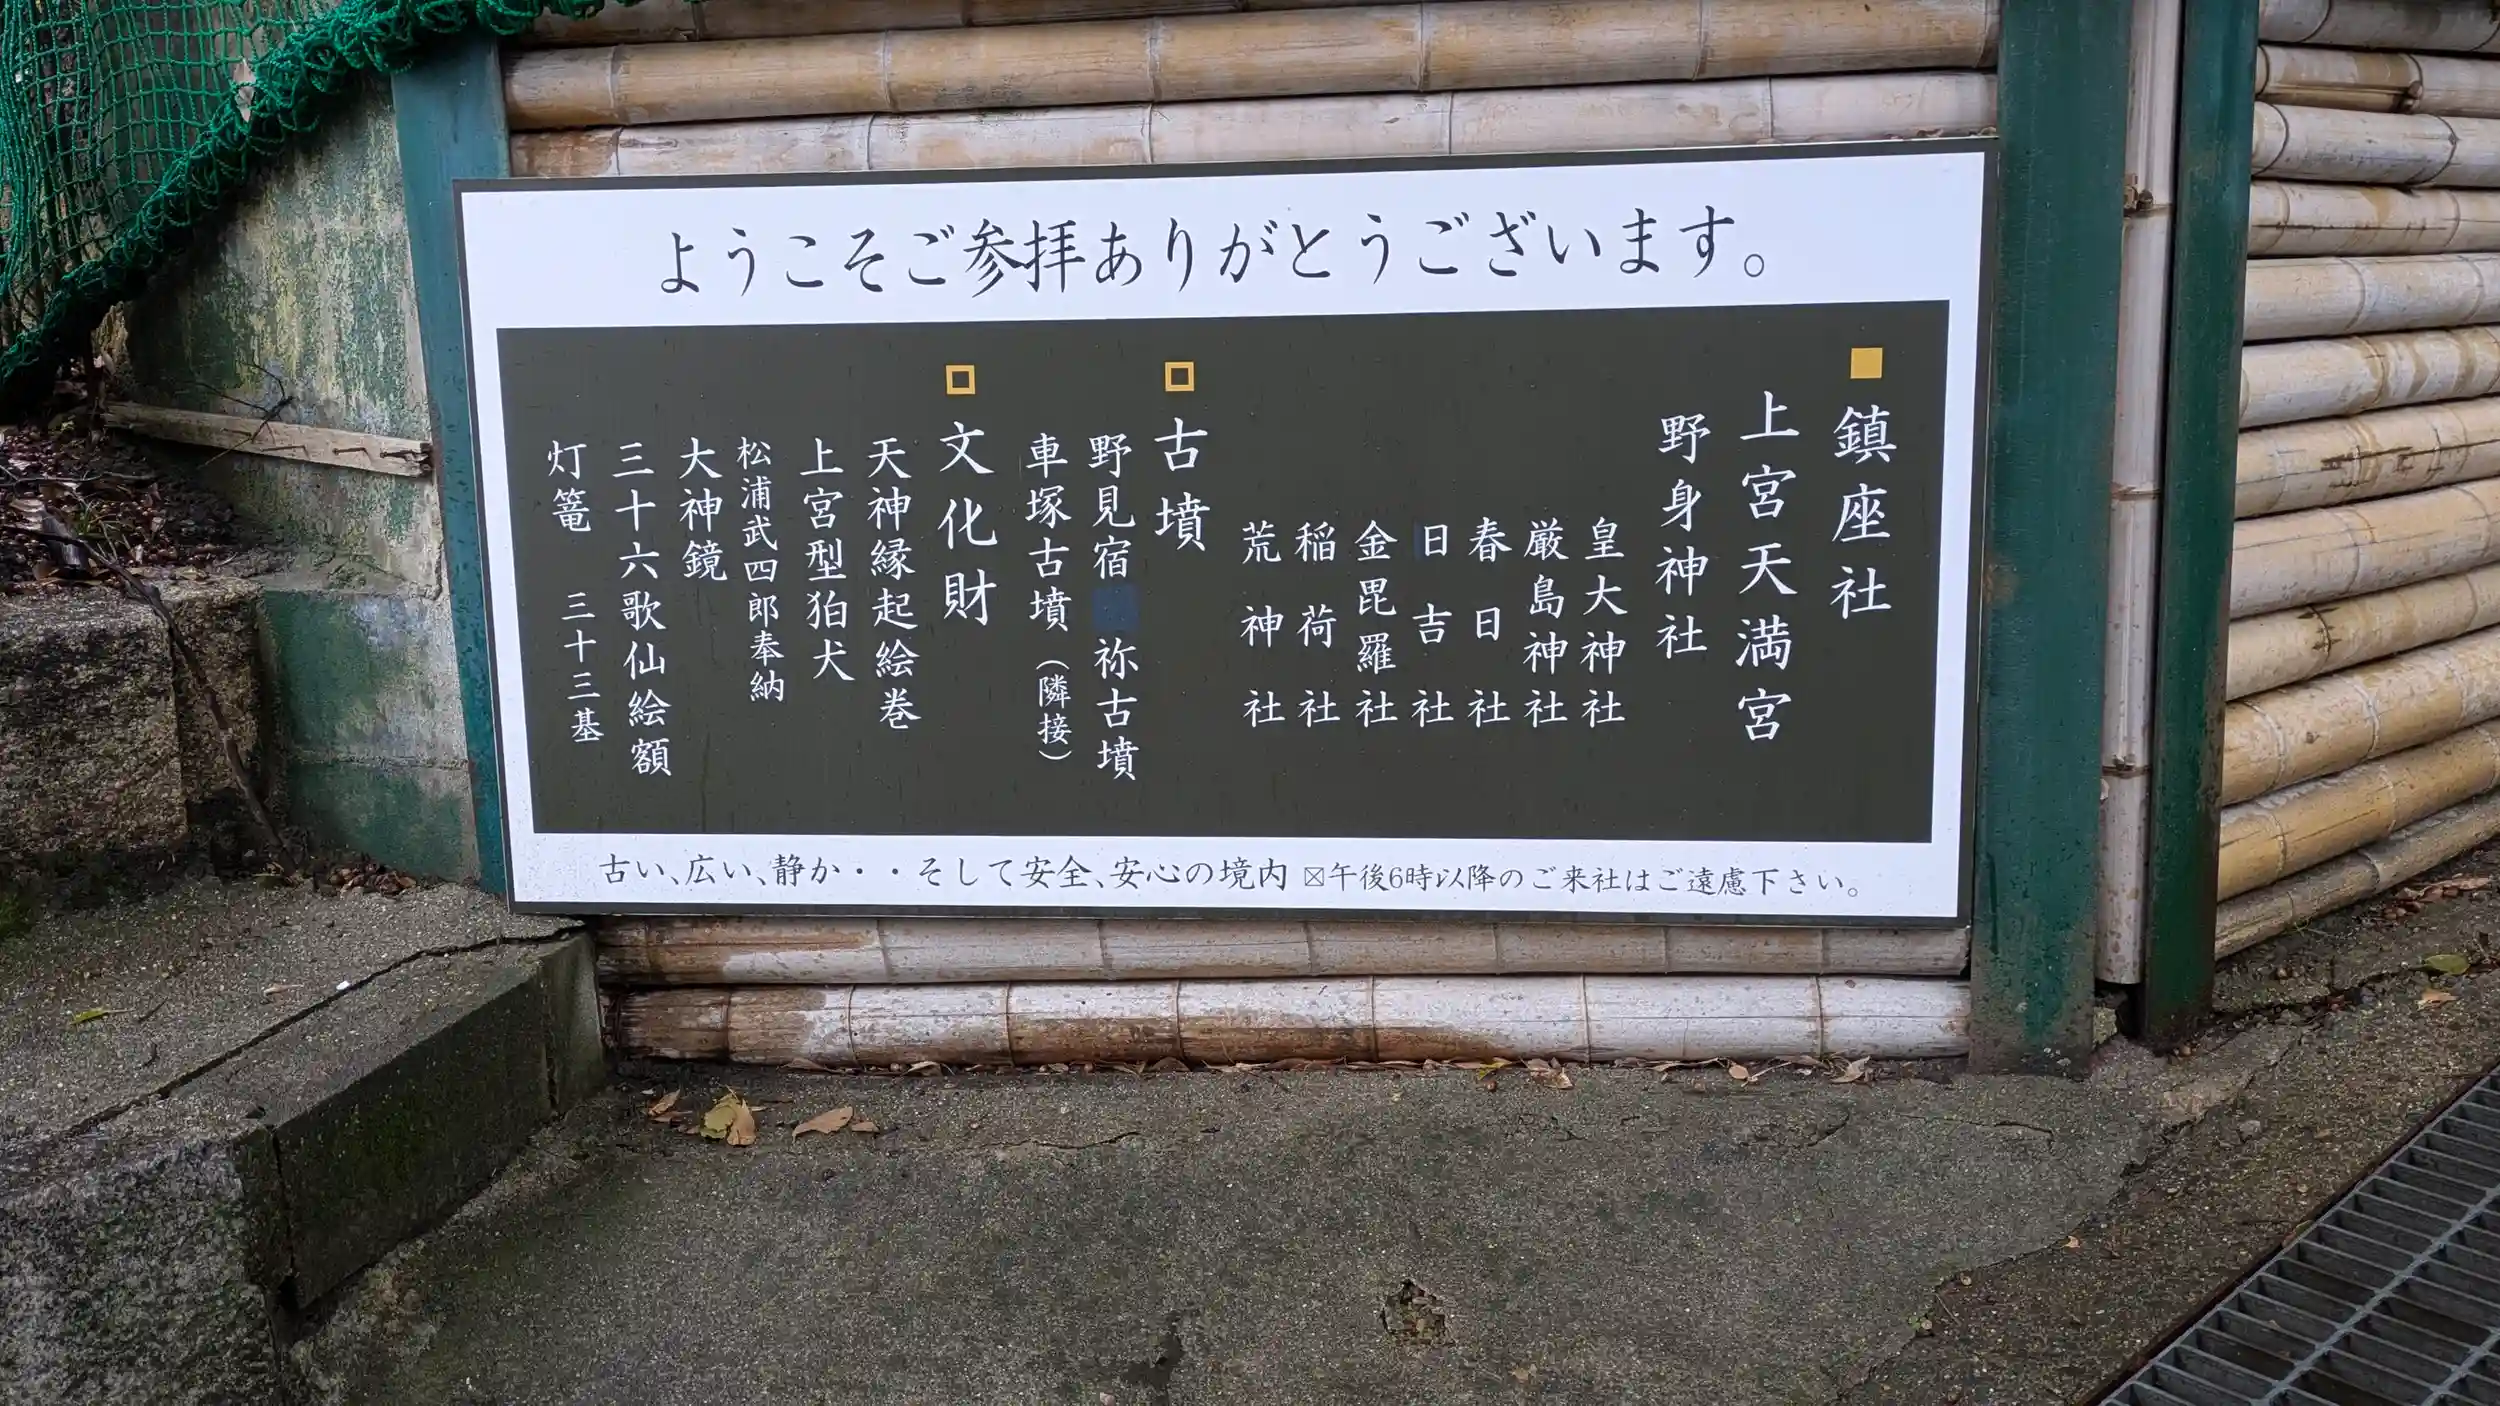 ようこそご参拝ありがとうございます。
鎮座社
上宮天満宮
野身神社
皇大神社
厳島神社
春日社
日吉社
金毘羅社
稲荷社
荒神社
古墳
野見宿 祢古墳
車塚古墳（隣接）
文化財
天神縁起絵巻
上宮型狛犬
松浦武四郎奉納
大神鏡
三十六歌仙絵額
灯篭 三十三基
古い、広い、静か・・そして安全、安心の境内 ☒午後6時以降のご来社はご遠慮下さい。